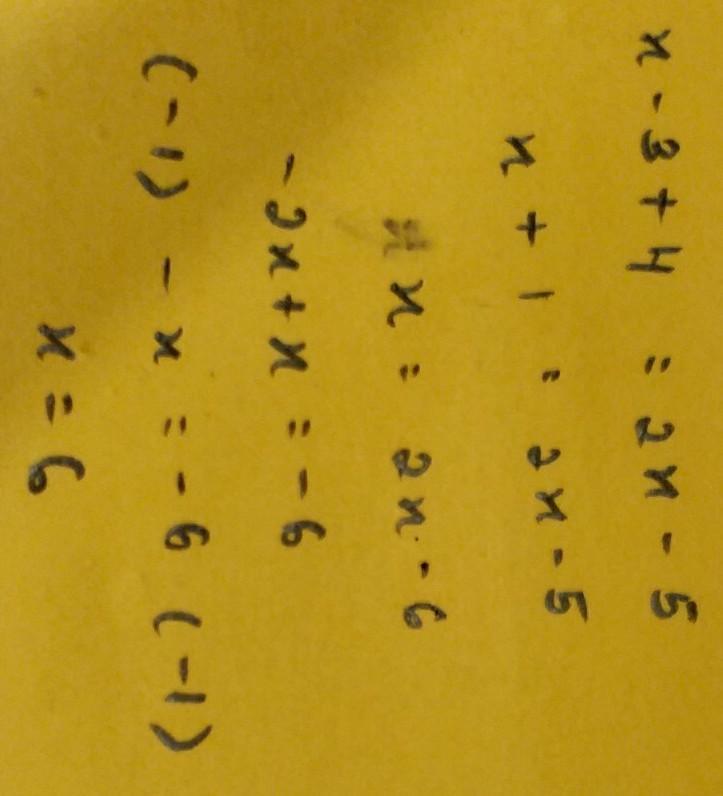 x - 3 + 4 = 2x - 5
x + 1 = 2x - 5
x = 2x - 6
- 2x + x = - 6
(-1) - x = - 6 (-1)
x = 6